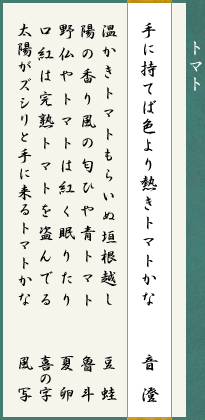 トマト
手に持てば色より熱きトマトかな 音澄
温かきトマトもらいぬ垣根越し 豆蛙
陽の香り風の匂ひや青トマト 魯斗
野仏やトマトは紅く眠りたり 夏卯
口紅は完熟トマトを盗んでる 喜の字
太陽がズシリと手に来るトマトかな 風写